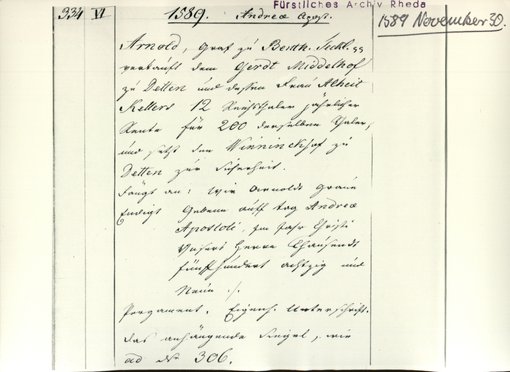 Fürstliches Archiv Rheda
334 VI 1589. Andreæ Apost. 1589 November 30.
Arnold, Graf zu Benth. Teckl. pp
verkauft dem Gerdt Middelhof
zu Detten und dessen Frau Alheit
Ketters 12 Reichsthaler jährlicher
Rente für 200 derselben Thaler,
und setzt den Winninckhof zu
Detten zur Sicherheit.
Fängt an: Wir Arnoldt Graue
Endigt Gebenn auff tag Andreæ
Apostoli, im Jahr Christi
Unsers Herrn Thausendt
fünffhundert achtzig und
Neun ./.
Pergament. Eigenh. Unterschrift.
Das anhängende Siegel, wie
ad № 306.